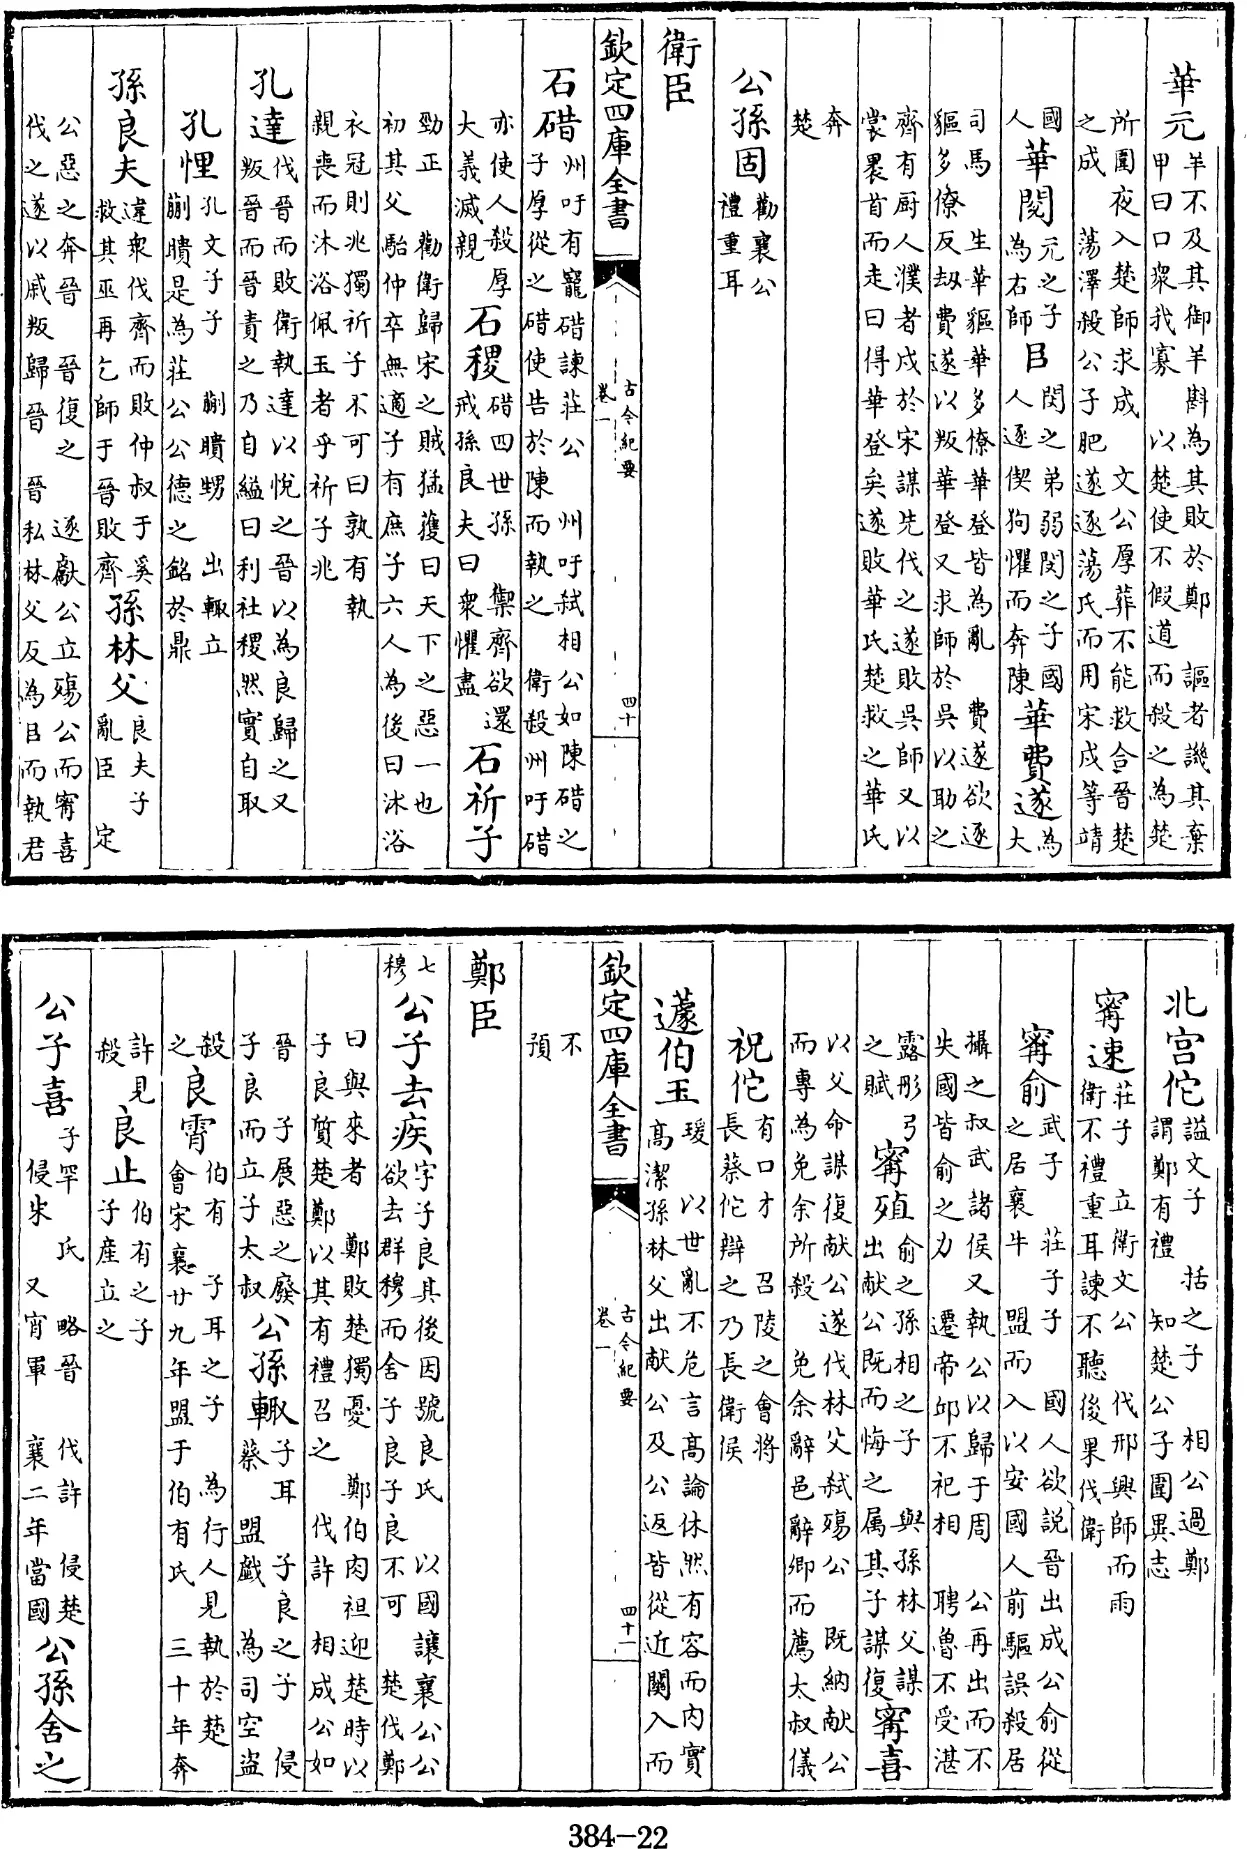 華元羊不及其御羊斟為其敗於鄭　謳者譏其棄甲曰口衆我寡　以楚使不假道而殺之為楚
所圍夜入楚師求成　文公厚葬不能救合晉楚之成　蕩澤殺公子肥遂逐蕩氏而用宋戍等靖
國人華閲元之子為右師臣閲之弟弱閲之子國人逐㹜狗懼而奔陳華費遂為大
司馬　生華貙華多僚華登皆為亂　費遂欲逐貙多僚反刼費遂以叛華登又求師於吳以助之
齊有厨人濮者戍於宋謀先伐之遂敗吳師又以裳裹首而走曰得華登矣遂敗華氏楚救之華氏
奔楚
公孫固勸襄公禮重耳
衛臣
欽定四庫全書
古今紀要
卷一
四十
石碏州吁有寵碏諫莊公　州吁弑相公如陳碏之子厚從之碏使告於陳而執之　衛殺州吁碏
亦使人殺厚大義滅親石稷碏四世孫　禦齊欲還戒孫良夫曰衆懼盡石祈子
勁正　勸衛歸宋之賊猛獲曰天下之惡一也初其父駘仲卒無適子有庶子六人為後曰沐浴
衣冠則兆獨祈子不可曰孰有執親喪而沐浴佩玉者乎祈子兆
孔達伐晉而敗衛執達以悅之晉以為良歸之又叛晉而晉責之乃自縊曰利社稷然實自取
孔悝孔文子子　蒯聵甥　出輒立蒯聵是為莊公公德之銘於鼎
孫良夫違衆伐齊而敗仲叔于奚救其巫再乞師于晉敗齊孫林父良夫子亂臣　定
公惡之奔晉　晉復之　逐獻公立殤公而甯喜伐之遂以戚叛歸晉　晉私林父反為臣而執君
北宫佗謚文子　括之子　相公過鄭謂鄭有禮　知楚公子圍異志
甯速莊子　立衛文公　伐邢興師而雨衛不禮重耳諫不聽後果伐衛
甯俞武子　莊子子　國人欲説晉出成公俞從之居襄牛　盟而入以安國人前驅誤殺居
攝之叔武諸侯又執公以歸于周　公再出而不失國皆俞之力　遷帝邱不祀相　聘魯不受湛
露彤弓之賦甯殖俞之孫相之子　與孫林父謀出献公既而悔之属其子謀復甯喜
以父命謀復献公遂伐林父弑殤公　既納献公而專為免余所殺　免余辭邑辭卿而薦太叔儀
祝佗有口才　召陵之會將長蔡佗辯之乃長衛侯
蘧伯玉瑗　以世亂不危言高論休然有容而内實高潔孫林父出献公及公返皆從近關入而
欽定四庫全書
古今紀要
卷一
四十一
不預
鄭臣
七穆公子去疾字子良其後因號良氏　以國讓襄公公欲去群穆而舍子良子良不可　楚伐鄭
曰與來者　鄭敗楚獨憂　鄭伯肉袒迎楚時以子良質楚鄭以其有禮召之　伐許　相成公如
晉　子展惡之廢子良而立子太叔公孫輒子耳　子良之子　侵蔡　盟戲　為司空盜
殺之良霄伯有　子耳之子　為行人見執於楚會宋襄廿九年盟于伯有氏　三十年奔
許見殺良止伯有之子子産立之
公子喜子罕　氏　略晉　伐許　侵楚侵宋　又宵軍　襄二年當國公孫舍之
384—22